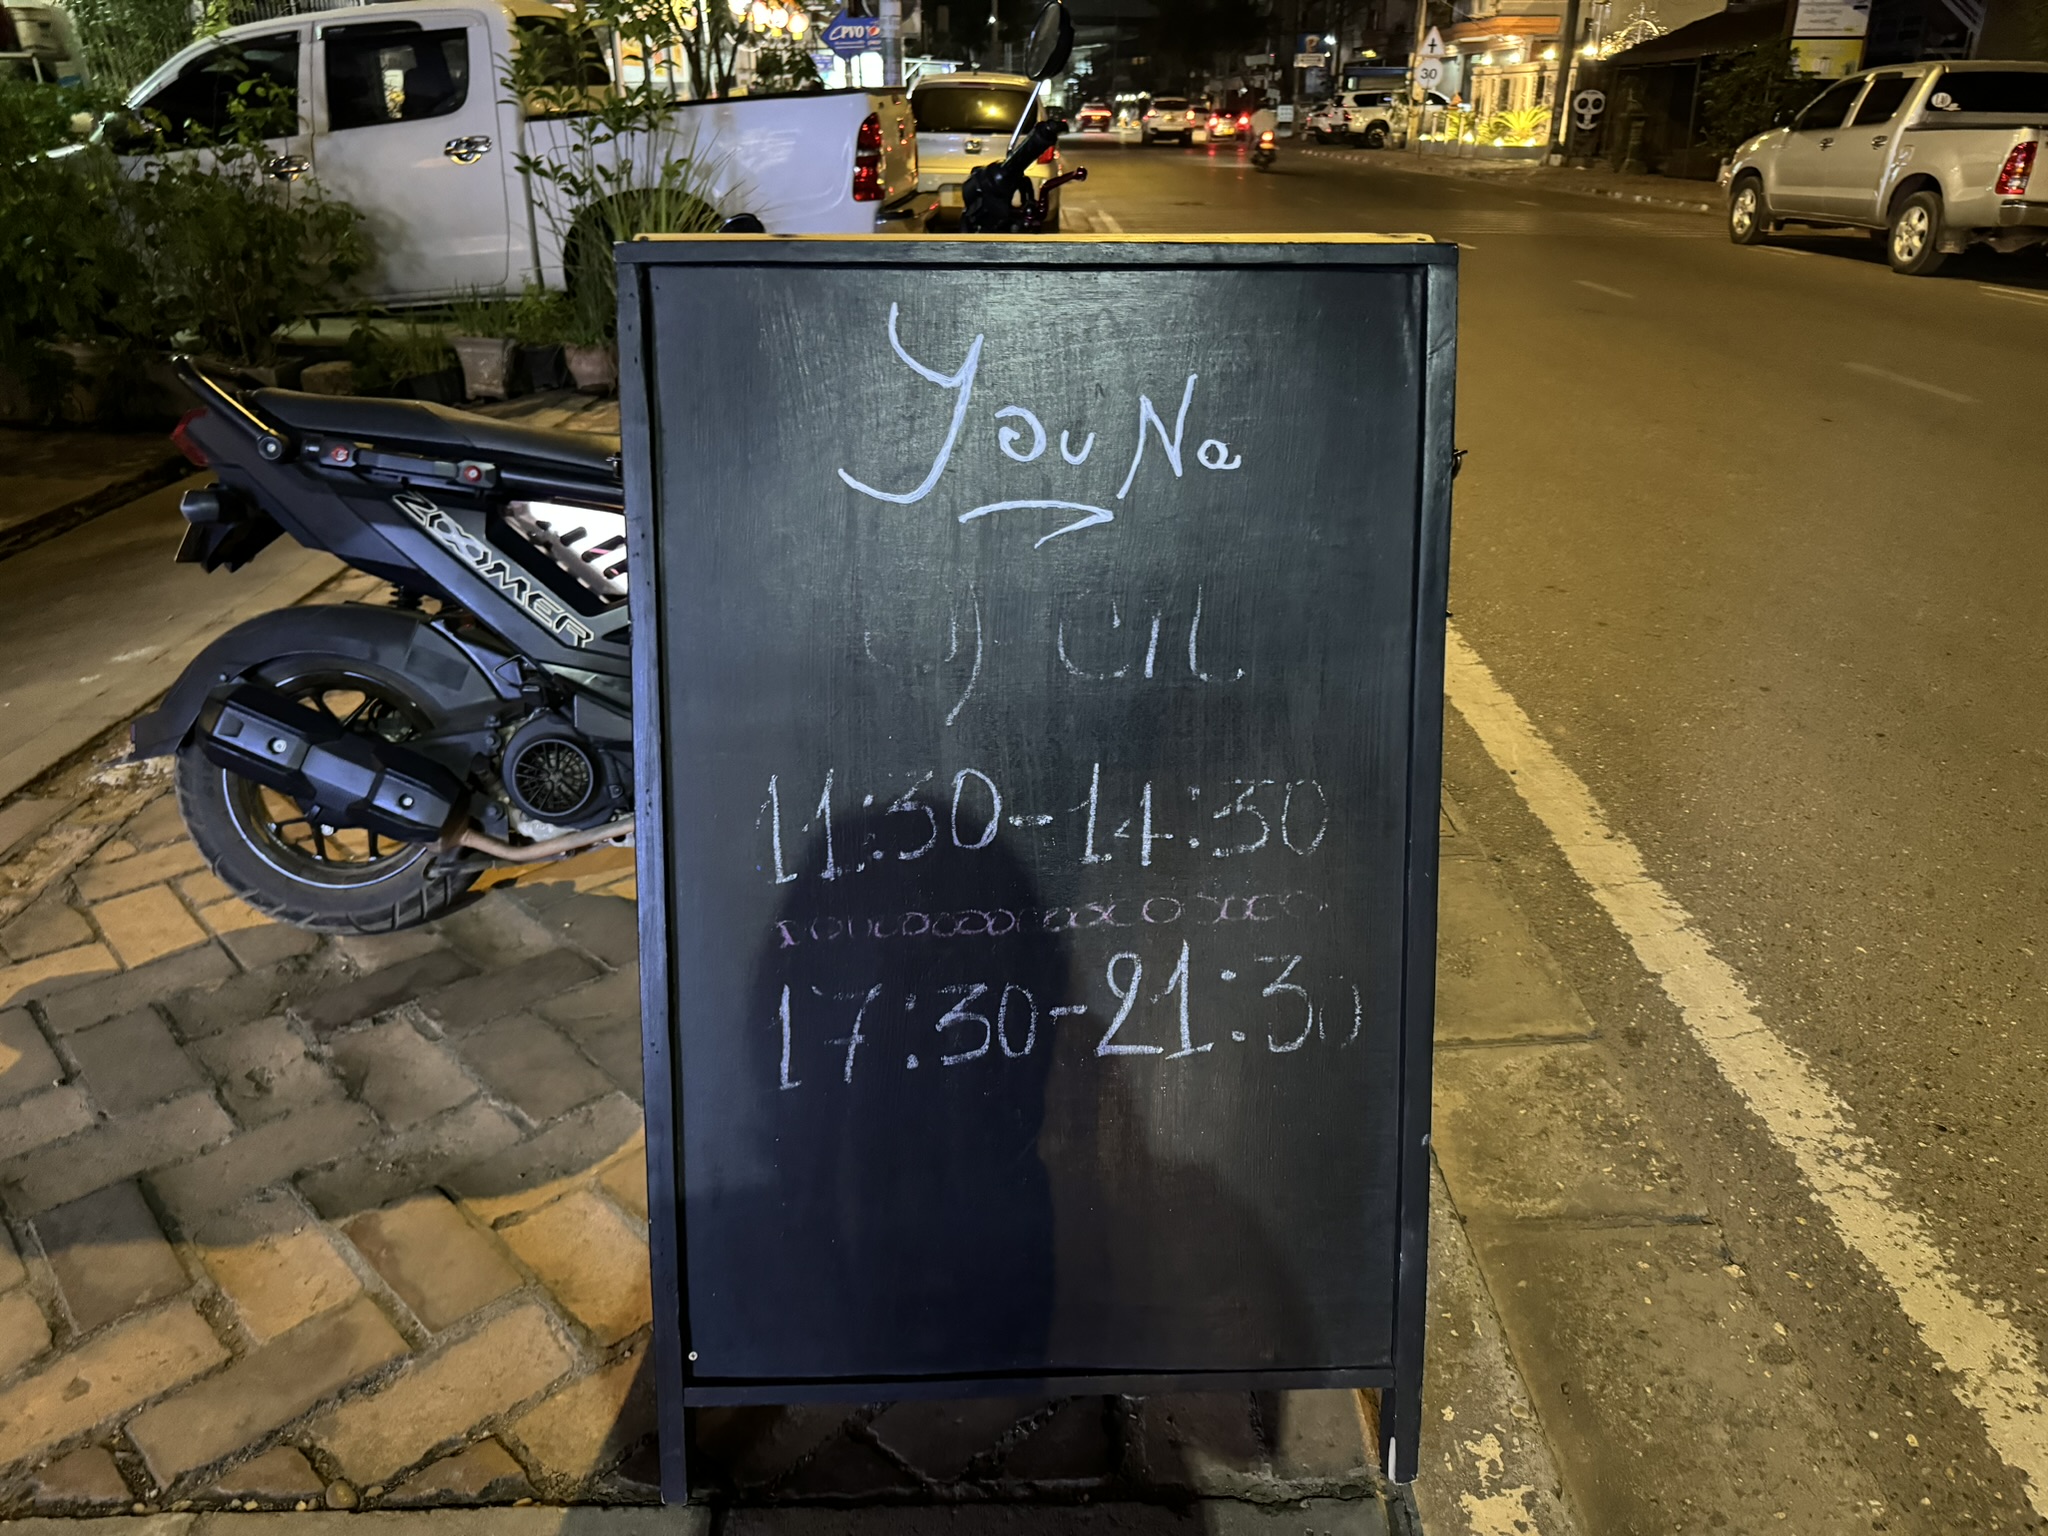 YouNa
11:30-14:30
17:30-21:30
ZOOMER
PVO
30